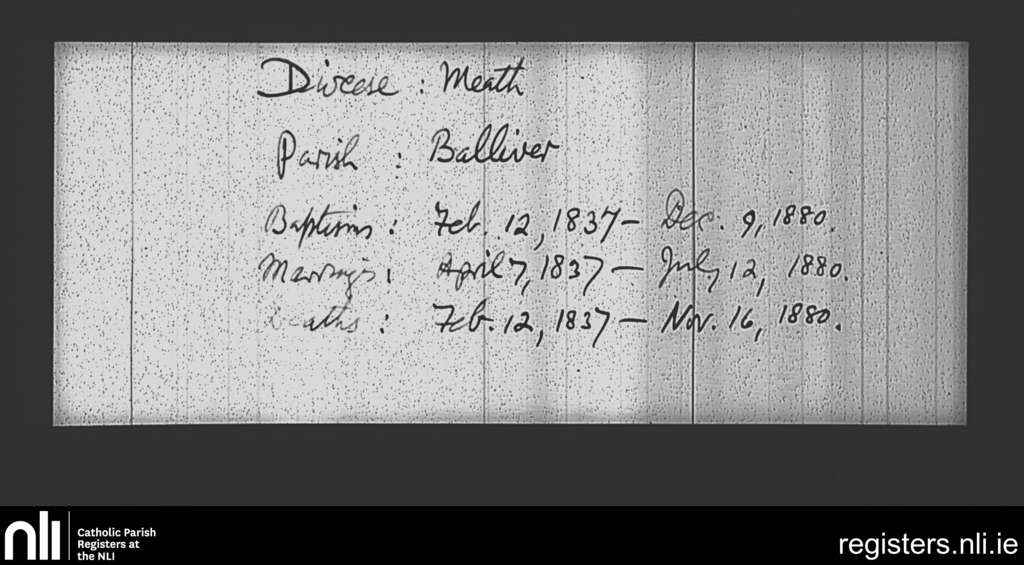 Diocese : Meath
Parish : Balliver
Baptisms : Feb. 12, 1837 – Dec. 9, 1880.
Marriages : April 7, 1837 – July 12, 1880.
Deaths : Feb. 12, 1837 – Nov. 16, 1880.
nli
Catholic Parish
Registers at
the NLI
registers.nli.ie